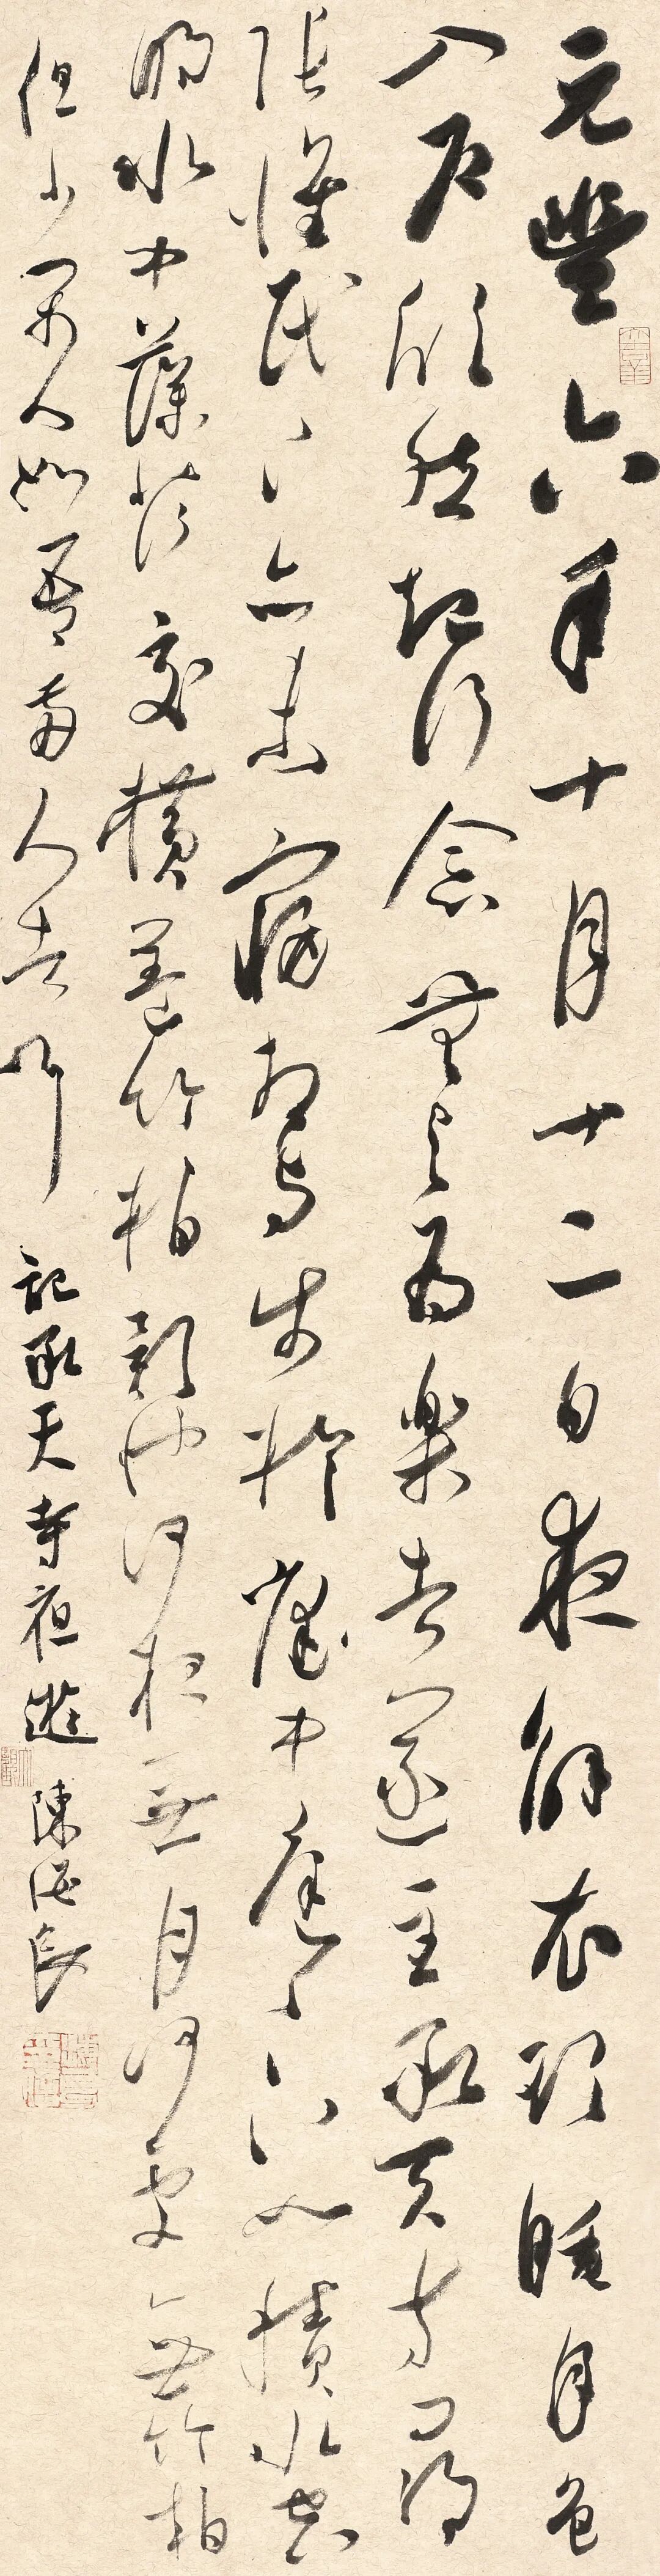 元豐六年十月十二日夜解衣欲睡月色
入戶欣然起行念無與為樂者遂至承天寺尋
張懷民〻亦未寢相與步於庭中庭下如積水空
明水中藻荇交橫蓋竹柏影也何夜無月何處無竹柏
但少閑人如吾兩人者耳 記承天寺夜遊 陳海良